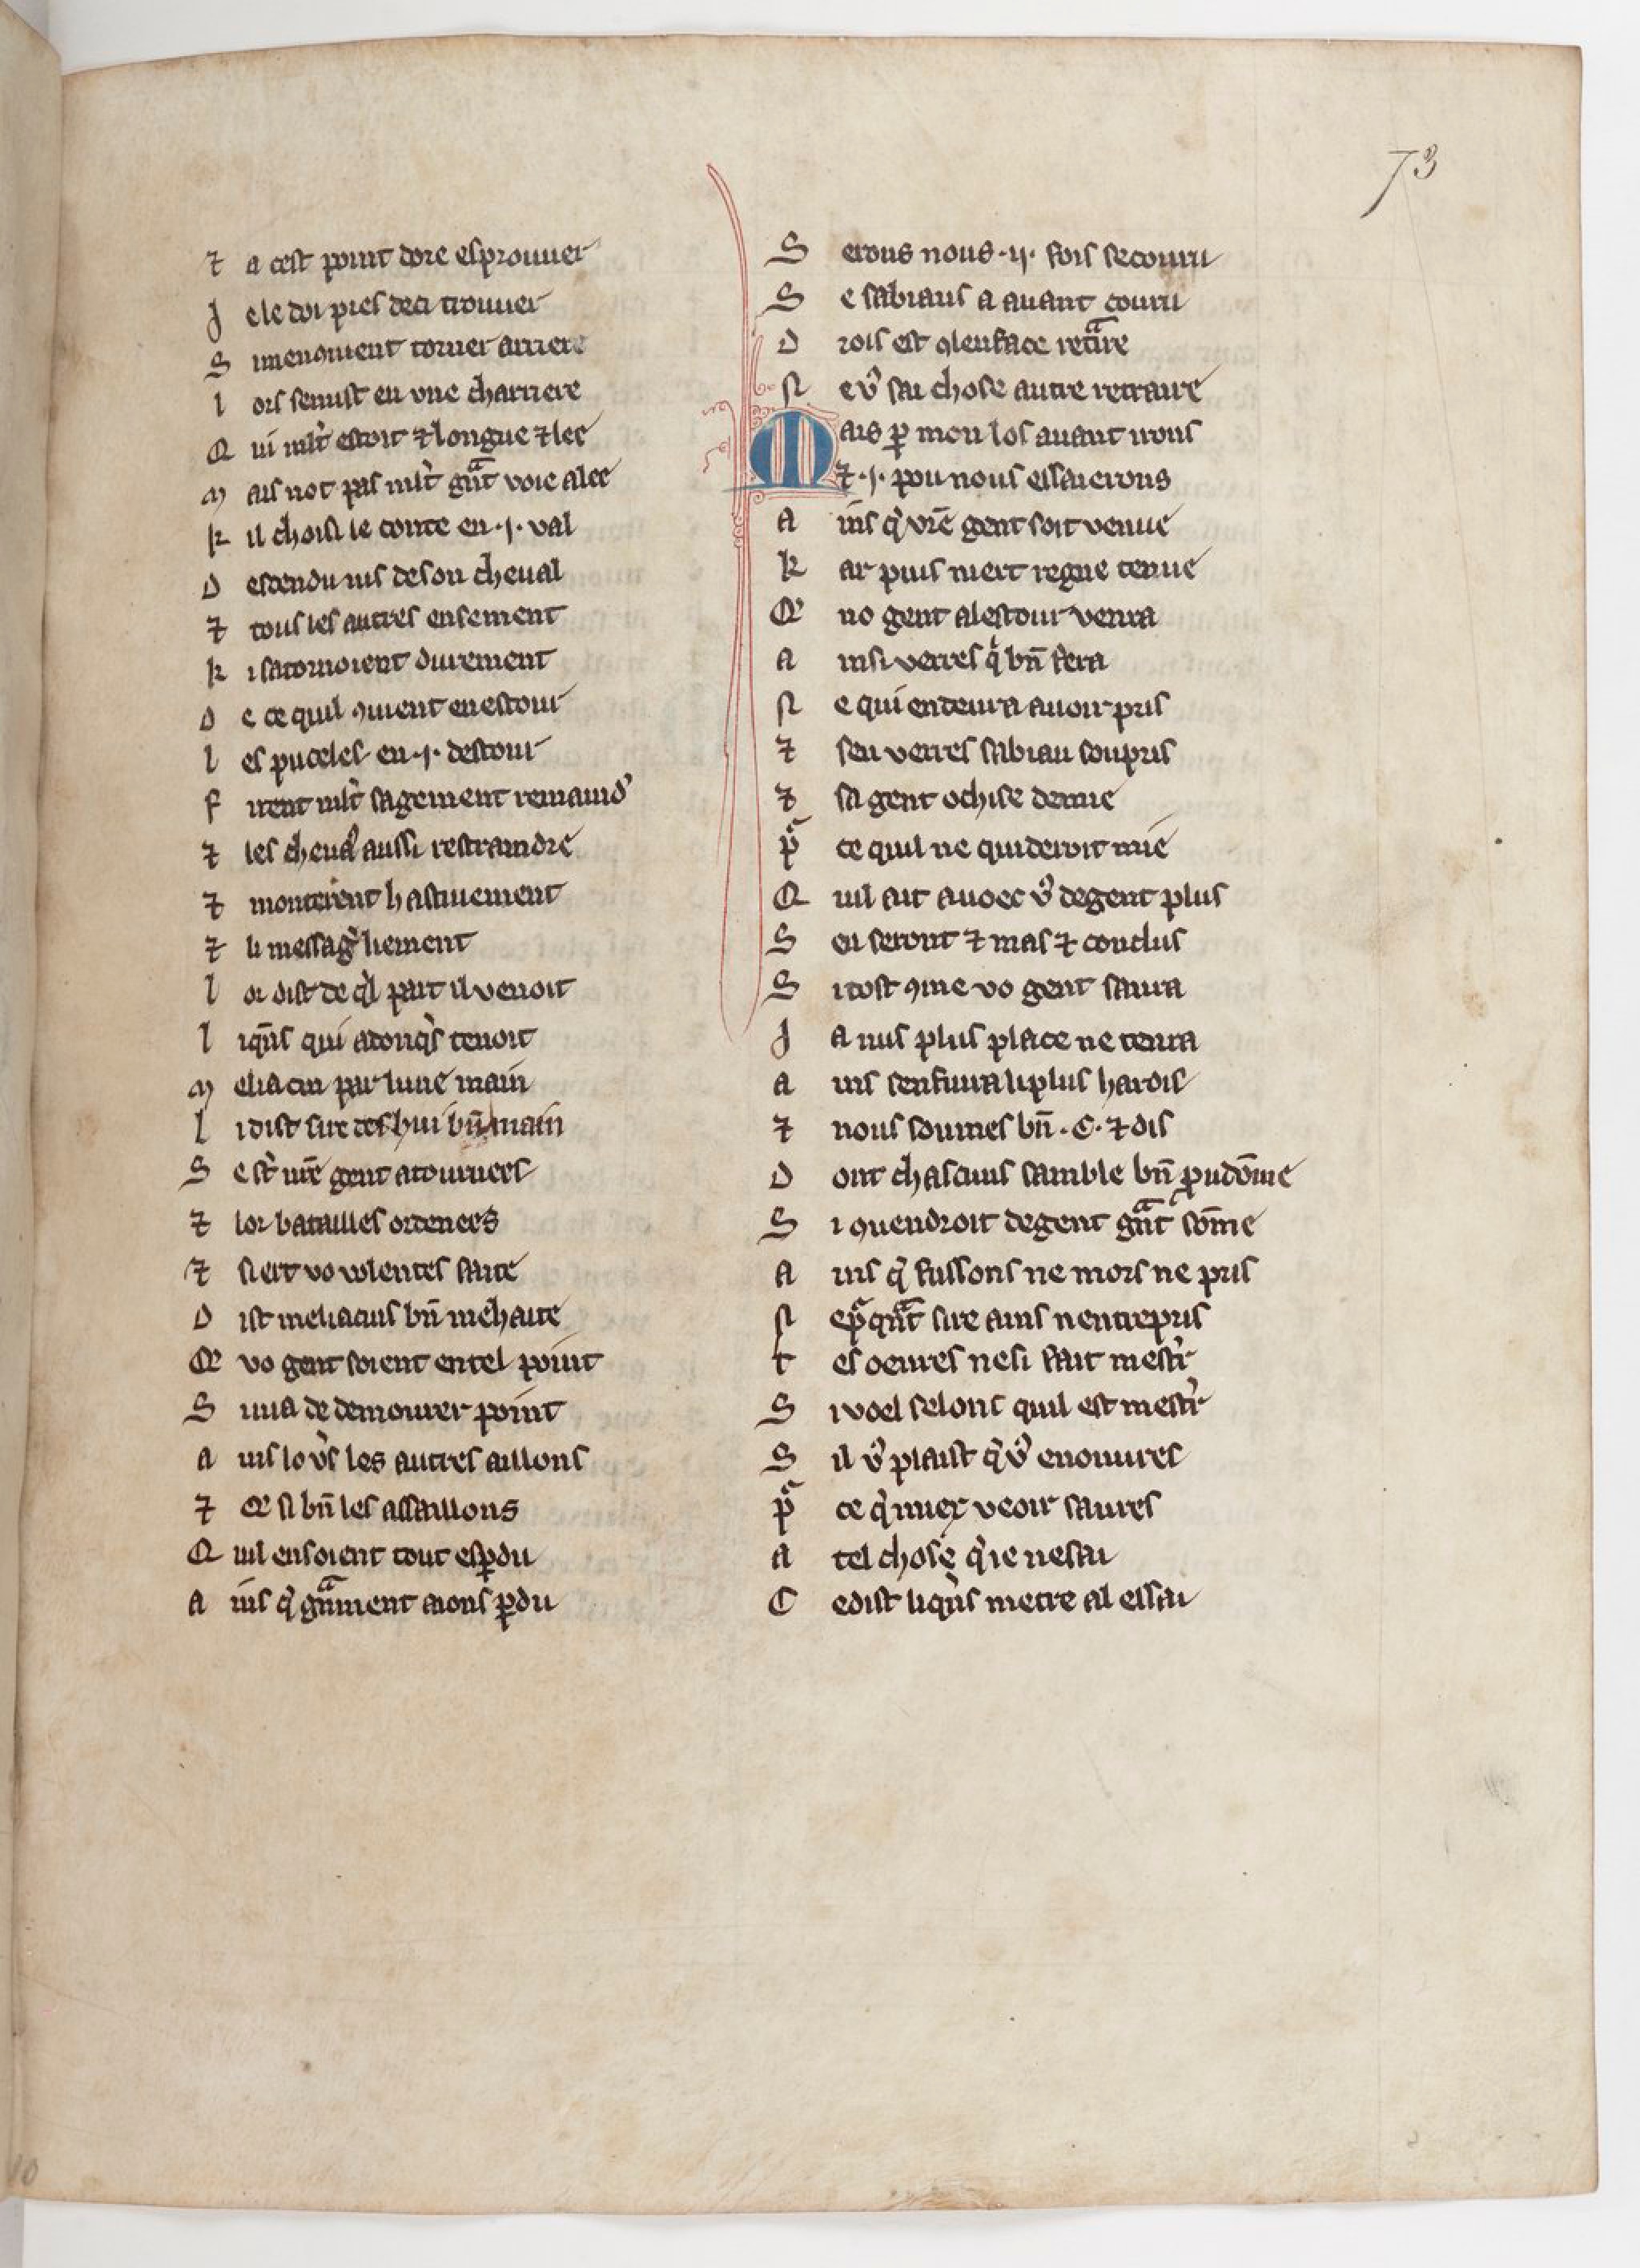 73
⁊ a cest point dore esprouuer
J e le doi pres deci trouuer
S i menoment torner arriere
l ors senuist en vne charriere
Q ui ml̃t estoit ⁊ longue ⁊ lee
M ais not pas ml̃t gñt voie alee
k il choisi le conte en ·j· val
D escendu ius de son cheual
⁊ tous les autres ensement
k i satornoient durement
D e ce quil ꝯuient en estour
l es puceles en ·j· destour
f irent ml̃t sagement remaind'
⁊ les cheua' aussi restraindre
⁊ monterent hastiuement
⁊ li messag' liement
l or dist de ql part il venoit
l iqñs qui adonqs tenoit
M eliacin par lune main
l i dist sire des hui bñ main
S est' nr̃e gent atournees
⁊ lor batailles ordenees
⁊ si ert vo volentes faite
D ist meliacins bñ me haite
Q̃ vo gent soient en tel point
S i nia de demourer point
A ins lo v's les autres aillons
⁊ q̃ si bñ les assaillons
Q uil en soient tout esꝑdu
A ins q' gñment aions ꝑdu
S erons nous ·ij· fois secouru
S e sabiaus a auant couru
D rois est ꝯ len face ret'ire
N e v' sai chose autre retraire
M ais ꝑ mon los auant irons
⁊ ·j· pou nous essaierons
A ins q' vr̃e gent soit venue
k ar puis niert regne tenue
Q̃ no gent a lestour venra
A insi verres q' bñ fera
N e qui en deura auoir pris
⁊ seu verres sabiau soupris
⁊ sa gent ochise demie
p' ce quil ne quideroit mie
Q uil ait auoec v' de gent plus
S en seront ⁊ mas ⁊ conclus
S i tost ꝯme vo gent saura
J a nus plus place ne tenra
A ins senfuira li plus hardis
⁊ nous soumes bñ ·C· ⁊ dis
D ont chascuns samble bñ p̱udõme
S i ꝯuendroit de gent gñt sõme
A ins q' fussons ne mors ne pris
N ep'qñt sire ains nentrepris
t es oeures ne si fait mest'r
S i voel selonc quil est mest'r
S il v' plaist q' v' en ouures
p' ce q' miex veoir saures
A tel chose q' ie ne sai
C e dist liqñs metre al essai